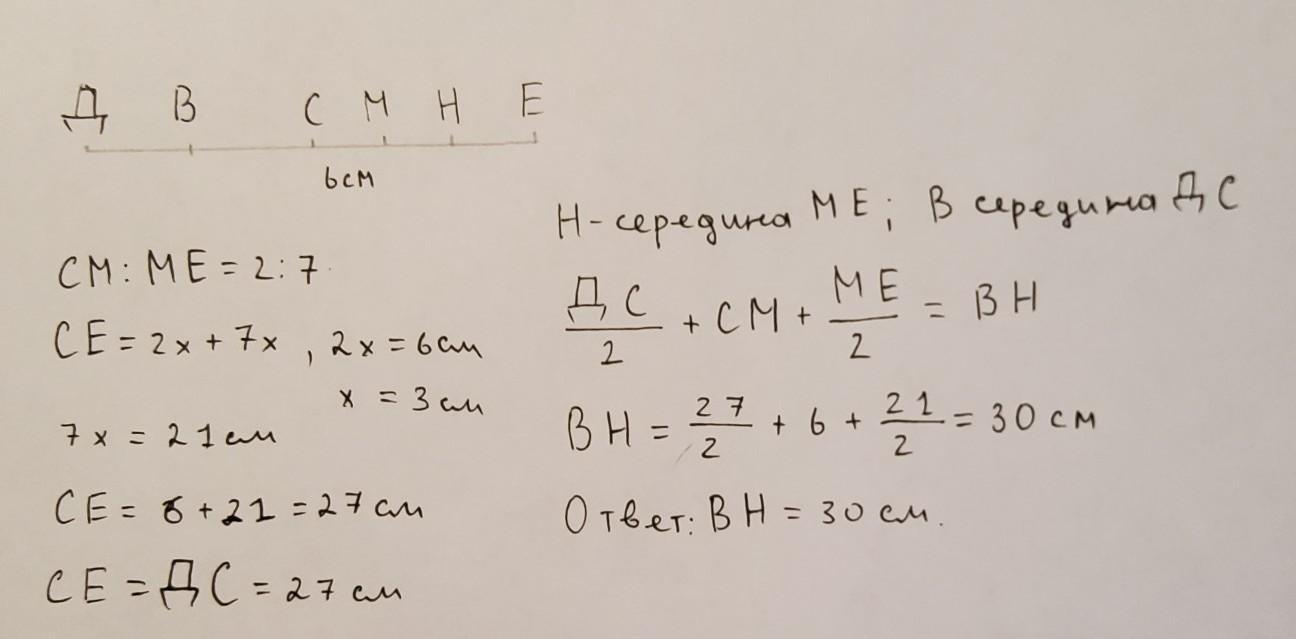 Д В С М Н Е
6см
СМ : МЕ = 2 : 7
СЕ = 2x + 7x , 2x = 6см
x = 3см
7x = 21см
СЕ = 6 + 21 = 27 см
СЕ = ДС = 27 см
Н - середина МЕ; В середина ДС
ДС/2 + СМ + МЕ/2 = ВН
ВН = 27/2 + 6 + 21/2 = 30 см
Ответ: ВН = 30 см.